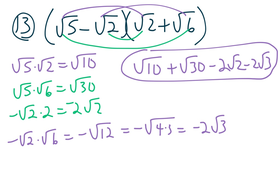 ⑬ (√5 − √2)(√2 + √6)
√5 · √2 = √10
√5 · √6 = √30
−√2 · 2 = −2√2
−√2 · √6 = −√12 = −√4·3 = −2√3
√10 + √30 − 2√2 − 2√3